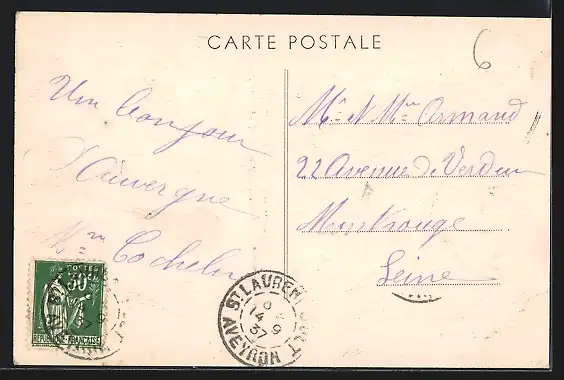 CARTE POSTALE
6
Un bonjour
d'Auvergne
Mme Cochelin
Mr & Mme Armand
22 Avenue de Verdun
Montrouge
Seine
POSTES
50c
REPUBLIQUE FRANÇAISE
ST LAURENT
AVEYRON
14
39